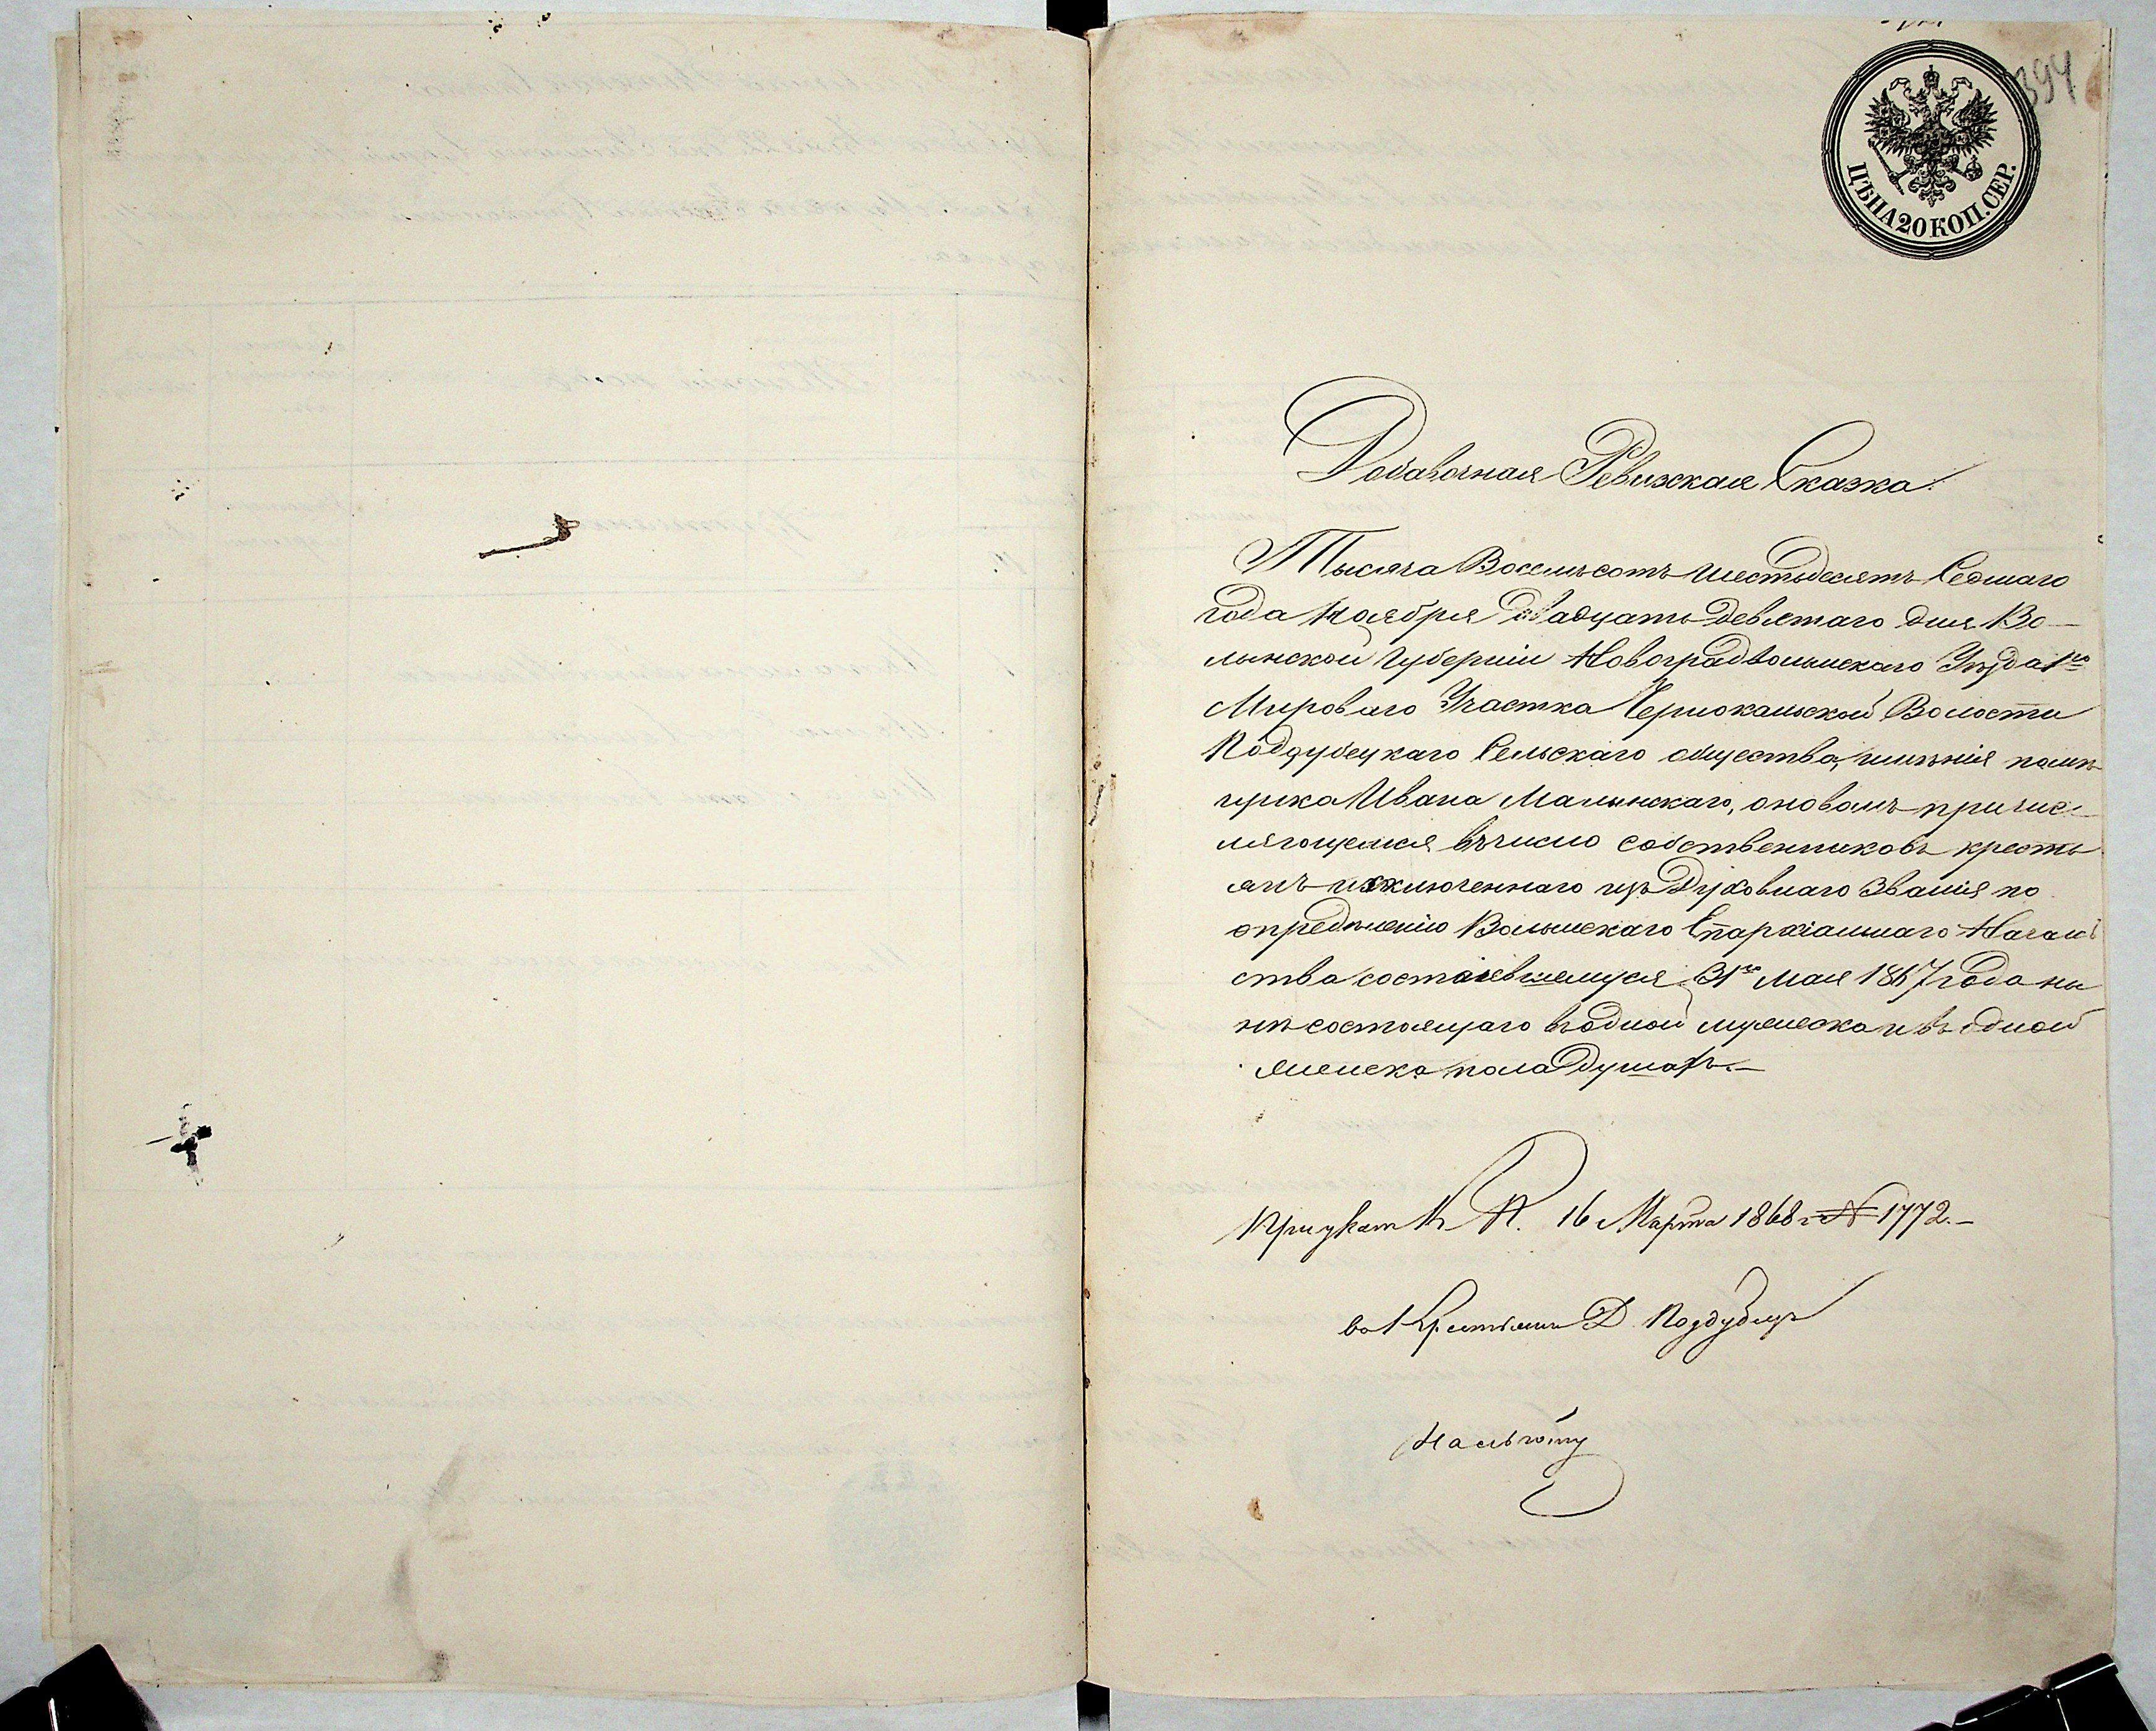 394
ЦѢНА 20 КОП. СЕР.
Добавочная Ревизская Сказка.
Тысяча Восемьсотъ шестьдесятъ Седмаго
года Ноября двадцать девятаго дня Во-
лынской Губерніи Новоградволынскаго Уѣзда 1го
Мироваго Участка Волости
Поддубецкаго Сельскаго общества, имѣнія помѣ
щика Ивана Малынскаго, о новомъ причис-
ляющемся въ число собственниковъ кресть
янъ изключеннаго изъ Духовнаго Званія по
опредѣленію Волынскаго Епархіальнаго Началь
ства состоявшемуся 31го Мая 1867 года ны
нѣ состоящаго въ одной мужеска и въ одной
женска пола душахъ.—
При указѣ К. П. 16 Марта 1868 г. № 1772.—
во 1 Д Поддубцы